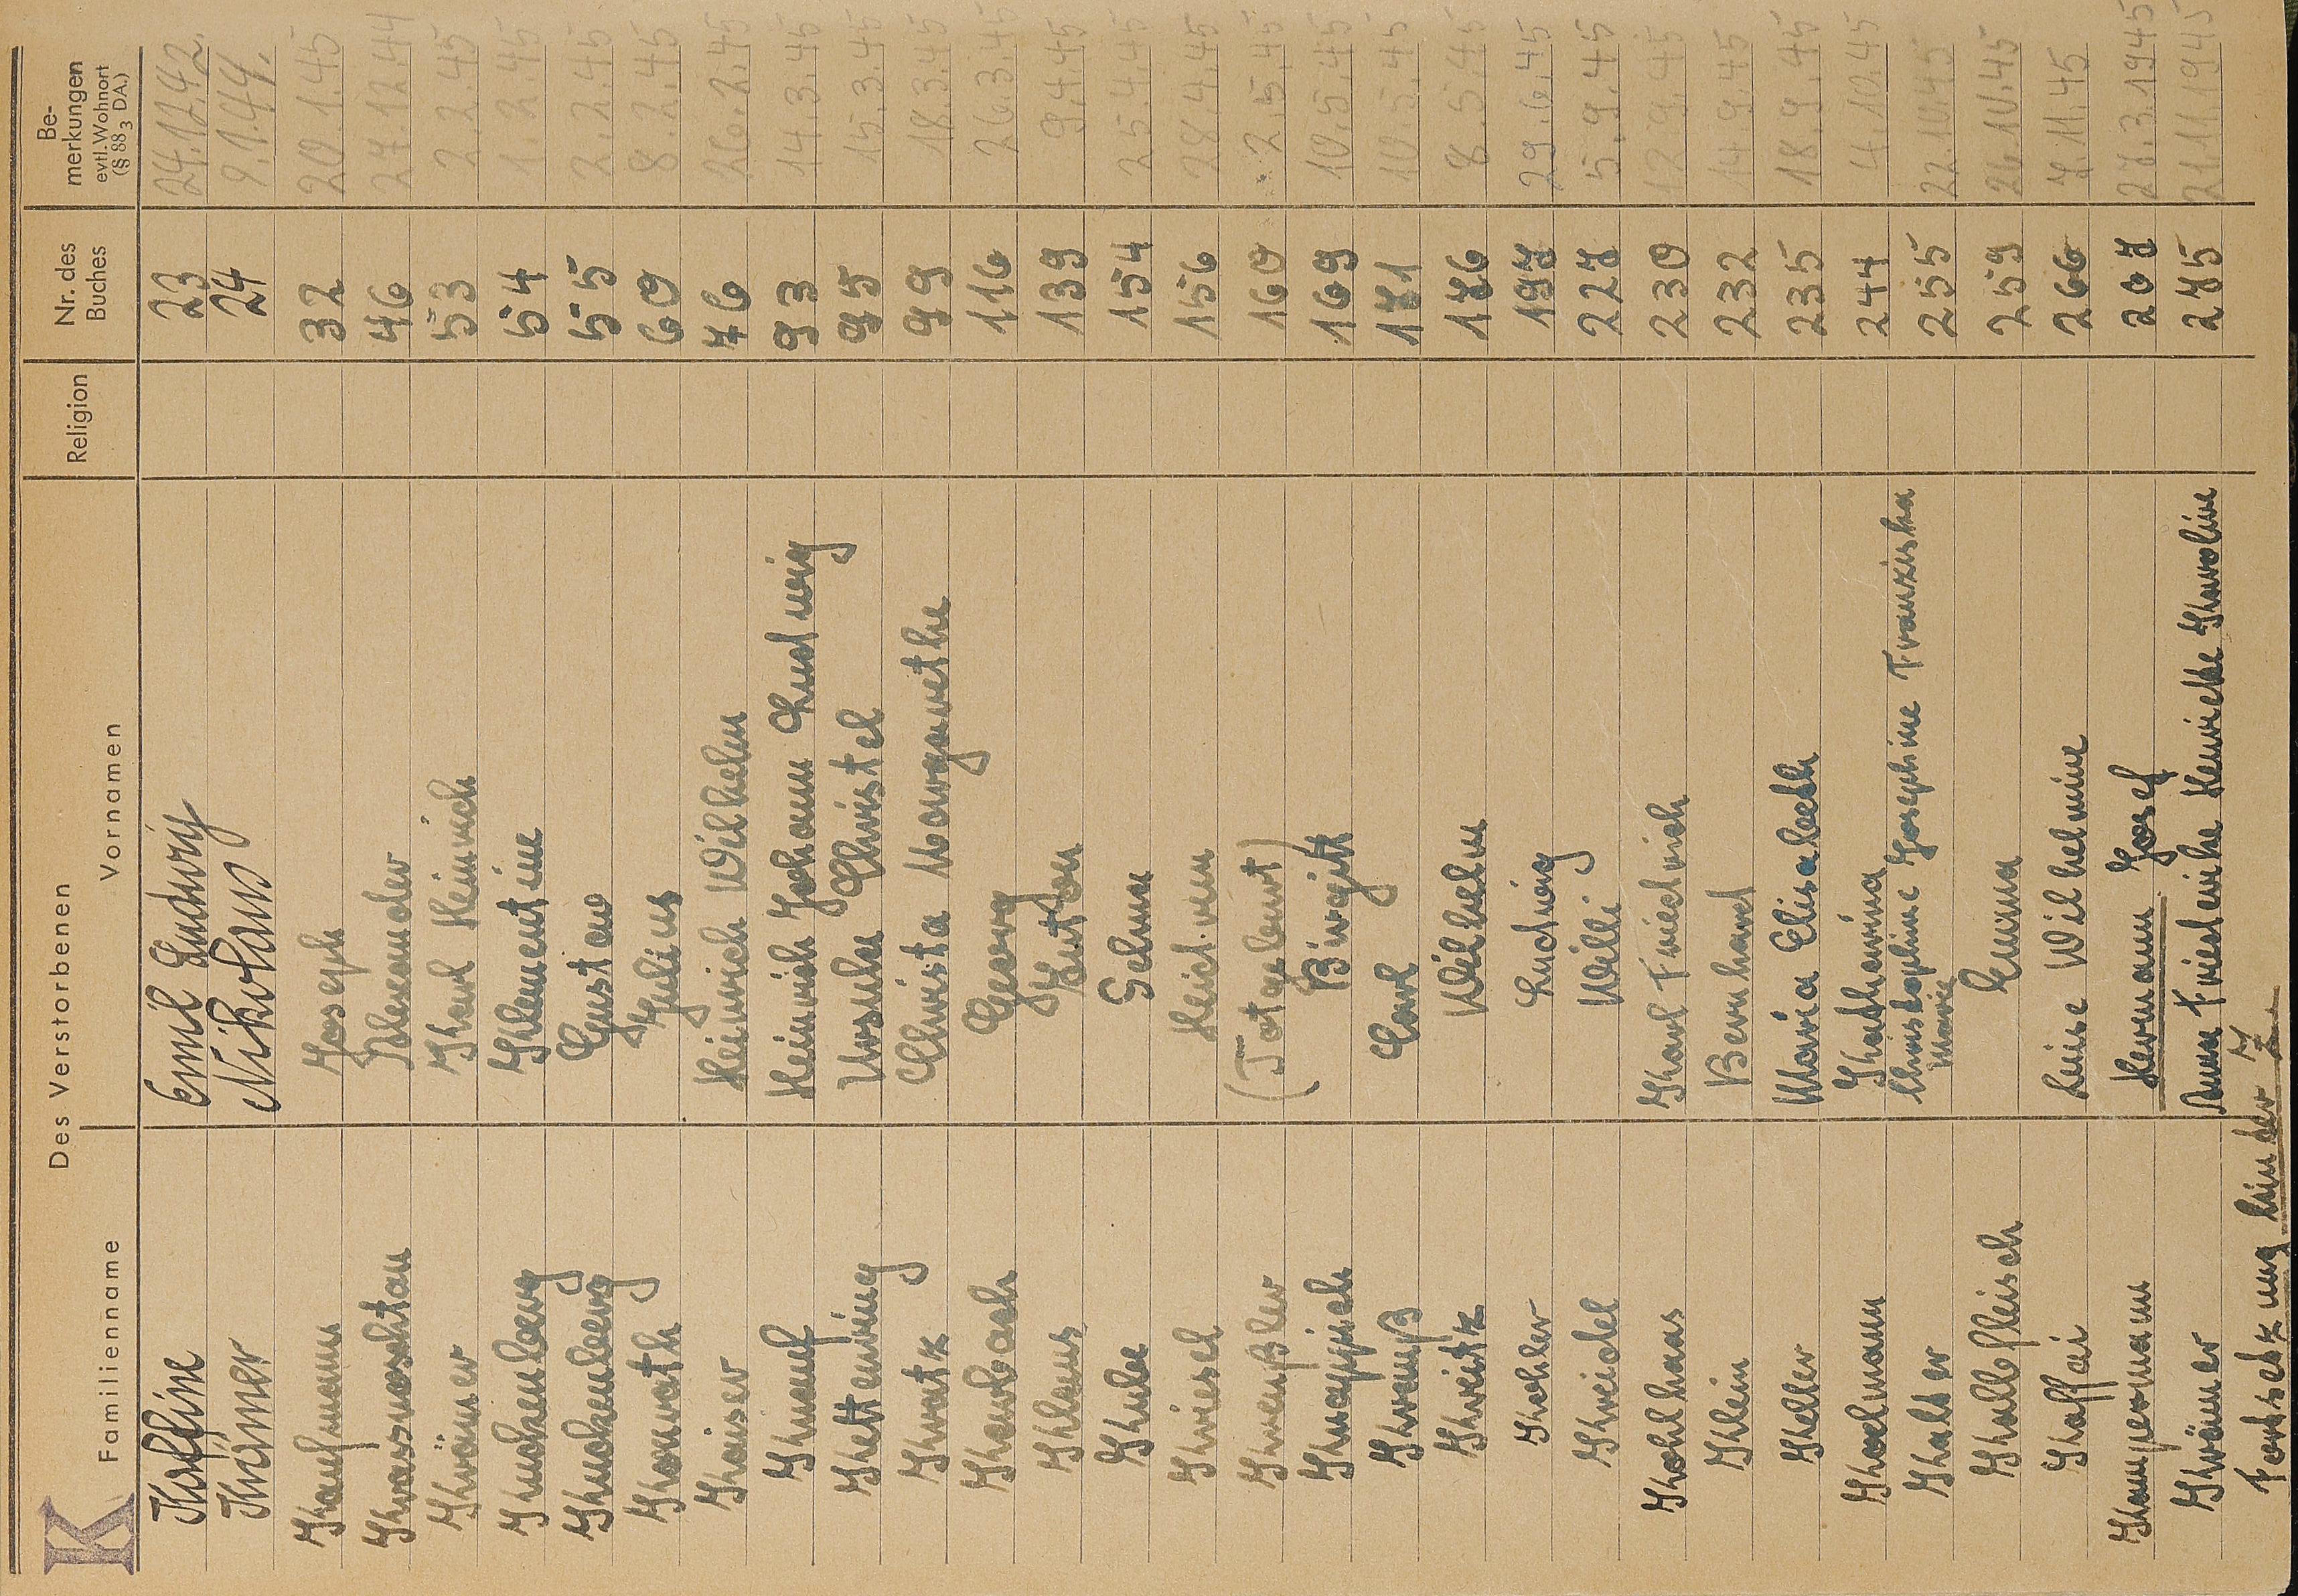 K
Des Verstorbenen
Familienname Vornamen Religion Nr. des Buches Be-merkungen evtl. Wohnort (§ 88₃ DA.)
Korfline Emil Ludwig 23 24.12.42.
Krämer Nikolaus 24 9.1.44.
Kaufmann Joseph 32 20.1.45
Alexander 46 27.12.44
Krämer Karl Heinrich 53 2.2.45
Knickenberg Klementine 54 1.2.45
Knickenberg Gustav 55 2.2.45
Konrath Julius 60 8.2.45
Kaiser Heinrich Wilhelm 76 26.2.45
Knauf Heinrich Johann Ludwig 93 14.3.45
Kettening Ursula Christel 95 15.3.45
Kratz Christa Margarethe 99 18.3.45
Kambach Georg 116 26.3.45
Klaus Anton 139 9.4.45
Kube Selma 154 25.4.45
Kriesel Heid 156 28.4.45
Kreußler (Totgeburt) 160 2.5.45
Knappich Birgitt 169 10.5.45
Krauß Carl 171 10.5.45
Kreitz Wilhelm 176 8.5.45
Kohler Ludwig 197 29.6.45
Kreidel Willi 227 5.9.45
Kohlhaas Karl Friedrich 230 12.9.45
Klein Bernhard 232 14.9.45
Keller Maria Elisabeth 235 18.9.45
Koelmann Katharina 244 4.10.45
Kalter Christophine Josephine Franziska Marie 255 22.10.45
Kalbfleisch Emma 259 26.10.45
Kaffai Luise Wilhelmine 266 7.11.45
Kampermann Hermann Josef 267 27.3.1945
Krämer Anna Friederike Henriette Karoline 275 21.11.1945
Fortsetzung hinter Z